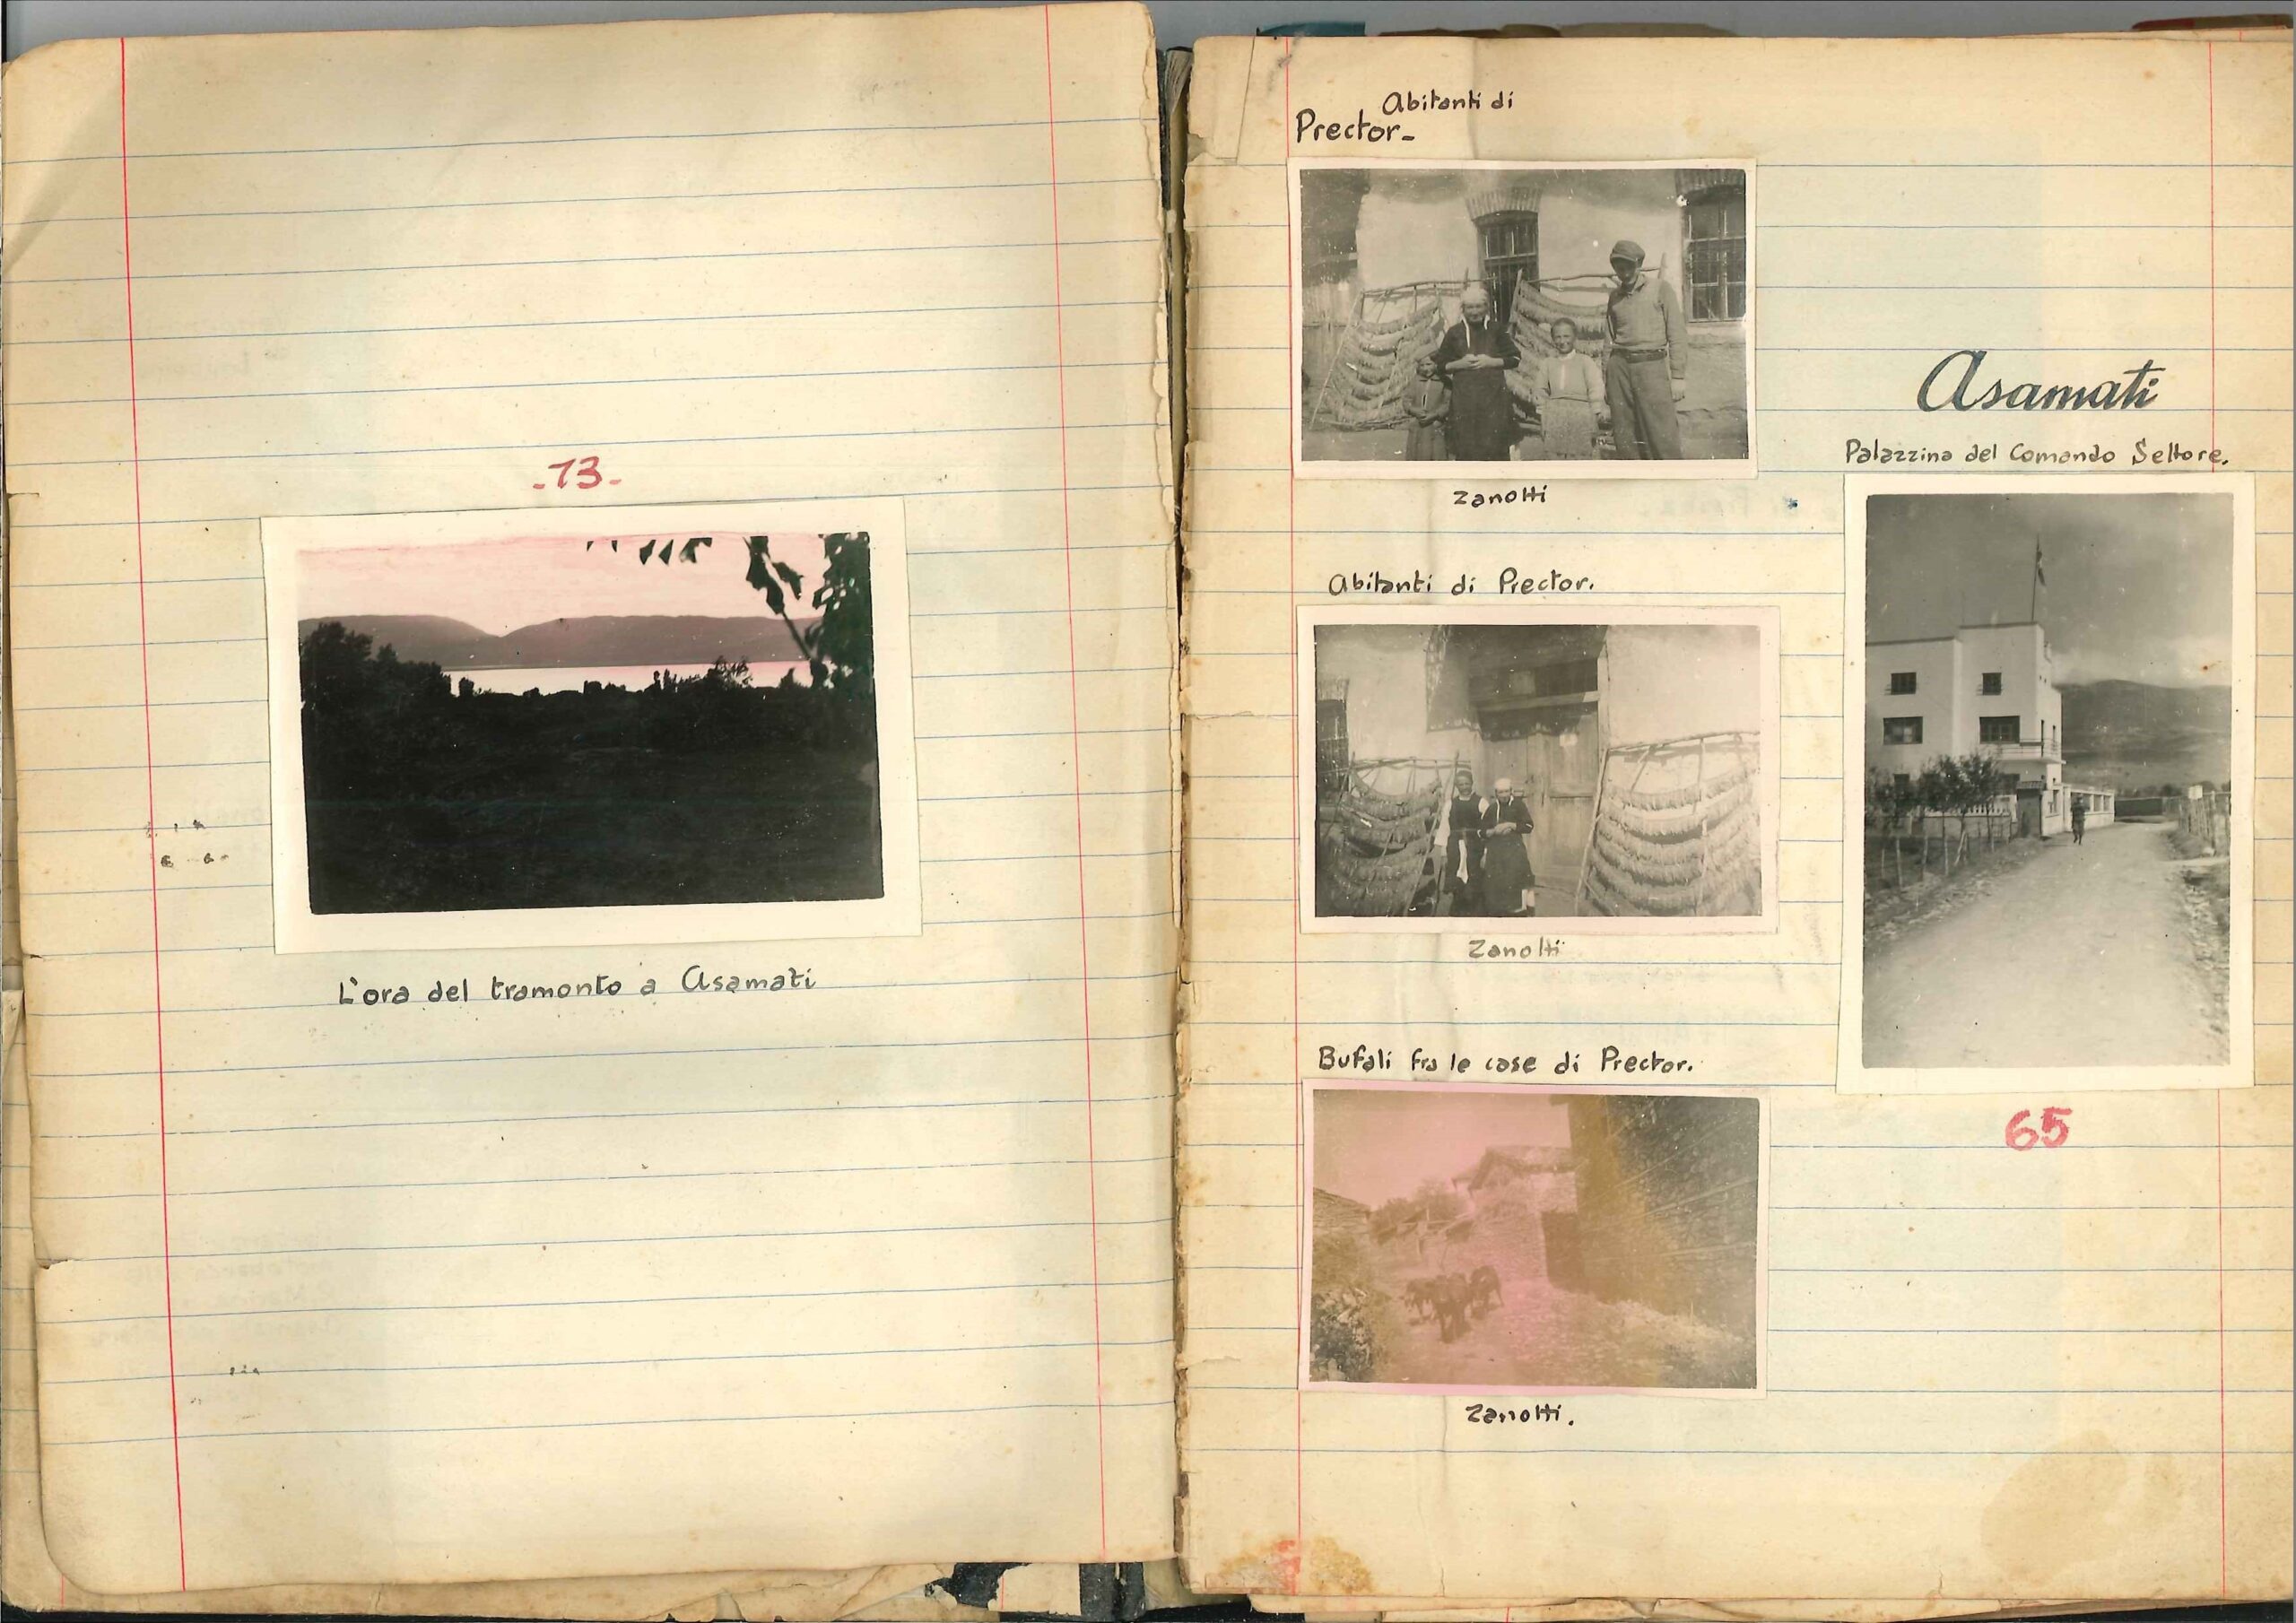 -73-
L'ora del tramonto a Asamati
Abitanti di
Prector-
Zanotti
Abitanti di Prector.
Zanotti
Bufali fra le case di Prector.
Zanotti.
Asamati
Palazzina del Comando Settore.
65